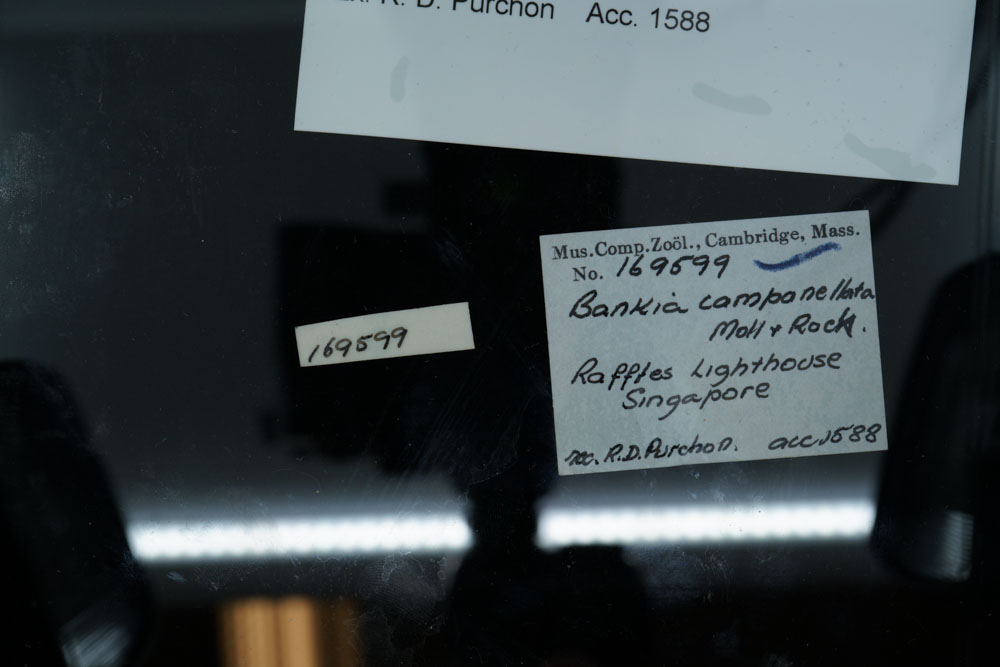 R. D. Purchon Acc. 1588
Mus.Comp.Zoöl., Cambridge, Mass.
No. 169599
Bankia campanellata
Moll & Roch.
Raffles Lighthouse
Singapore
rec. R.D.Purchon. acc.1588
169599